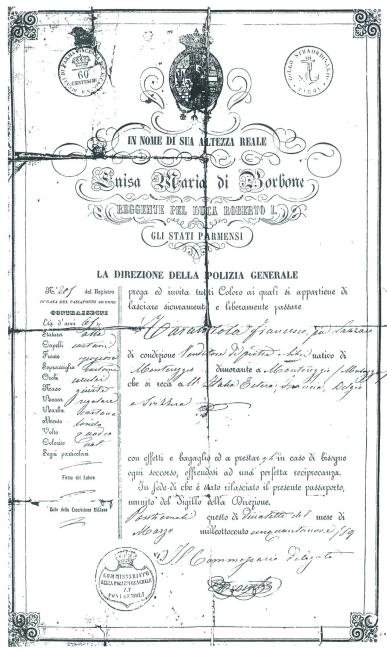 60
CENTESIMI
BOLLO STRAORDINARIO
IN NOME DI SUA ALTEZZA REALE
Luisa Maria di Borbone
REGGENTE PEL DUCA ROBERTO I.
GLI STATI PARMENSI
LA DIREZIONE DELLA POLIZIA GENERALE
N.° 205 del Registro
prega ed invita tutti Coloro ai quali si appartiene di
lasciare sicuramente e liberamente passare
CONTRASSEGNI
Età d'anni
Statura alta
Capelli castani
Fronte spaziosa
Sopracciglia castane
Occhi
Naso giusto
Bocca regolare
Barba castana
Mento tondo
Volto quadro
Colorito
Segni particolari
Firma del Latore
Tarantola Francesco
di condizione Venditore di libri nativo di
Montereggio dimorante a Montereggio
che si reca all' Italia Estera, Francia, Belgio
e Svizzera
con effetti e bagaglio ed a prestargli in caso di bisogno
ogni soccorso, offrendosi ad una perfetta reciprocanza.
In fede di che è stato rilasciato il presente passaporto,
munito del Sigillo della Direzione.
Pontremoli questo dì diciasette del mese di
Marzo milleottocento cinquantanove /59
Il Commissario Delegato
COMMISSARIATO
DELLA POLIZIA GENERALE
IN
PONTREMOLI